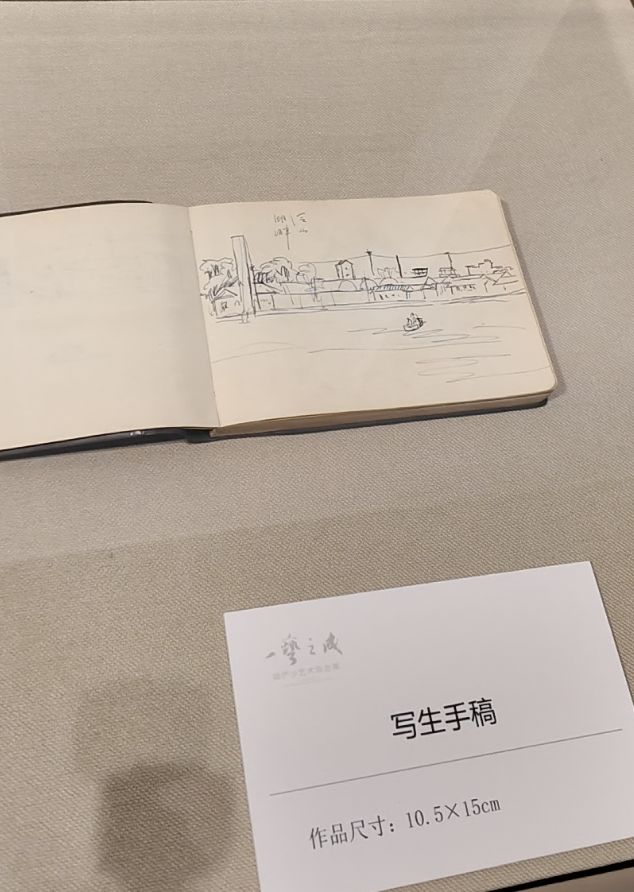 一藝之成
写生手稿
作品尺寸：10.5×15cm